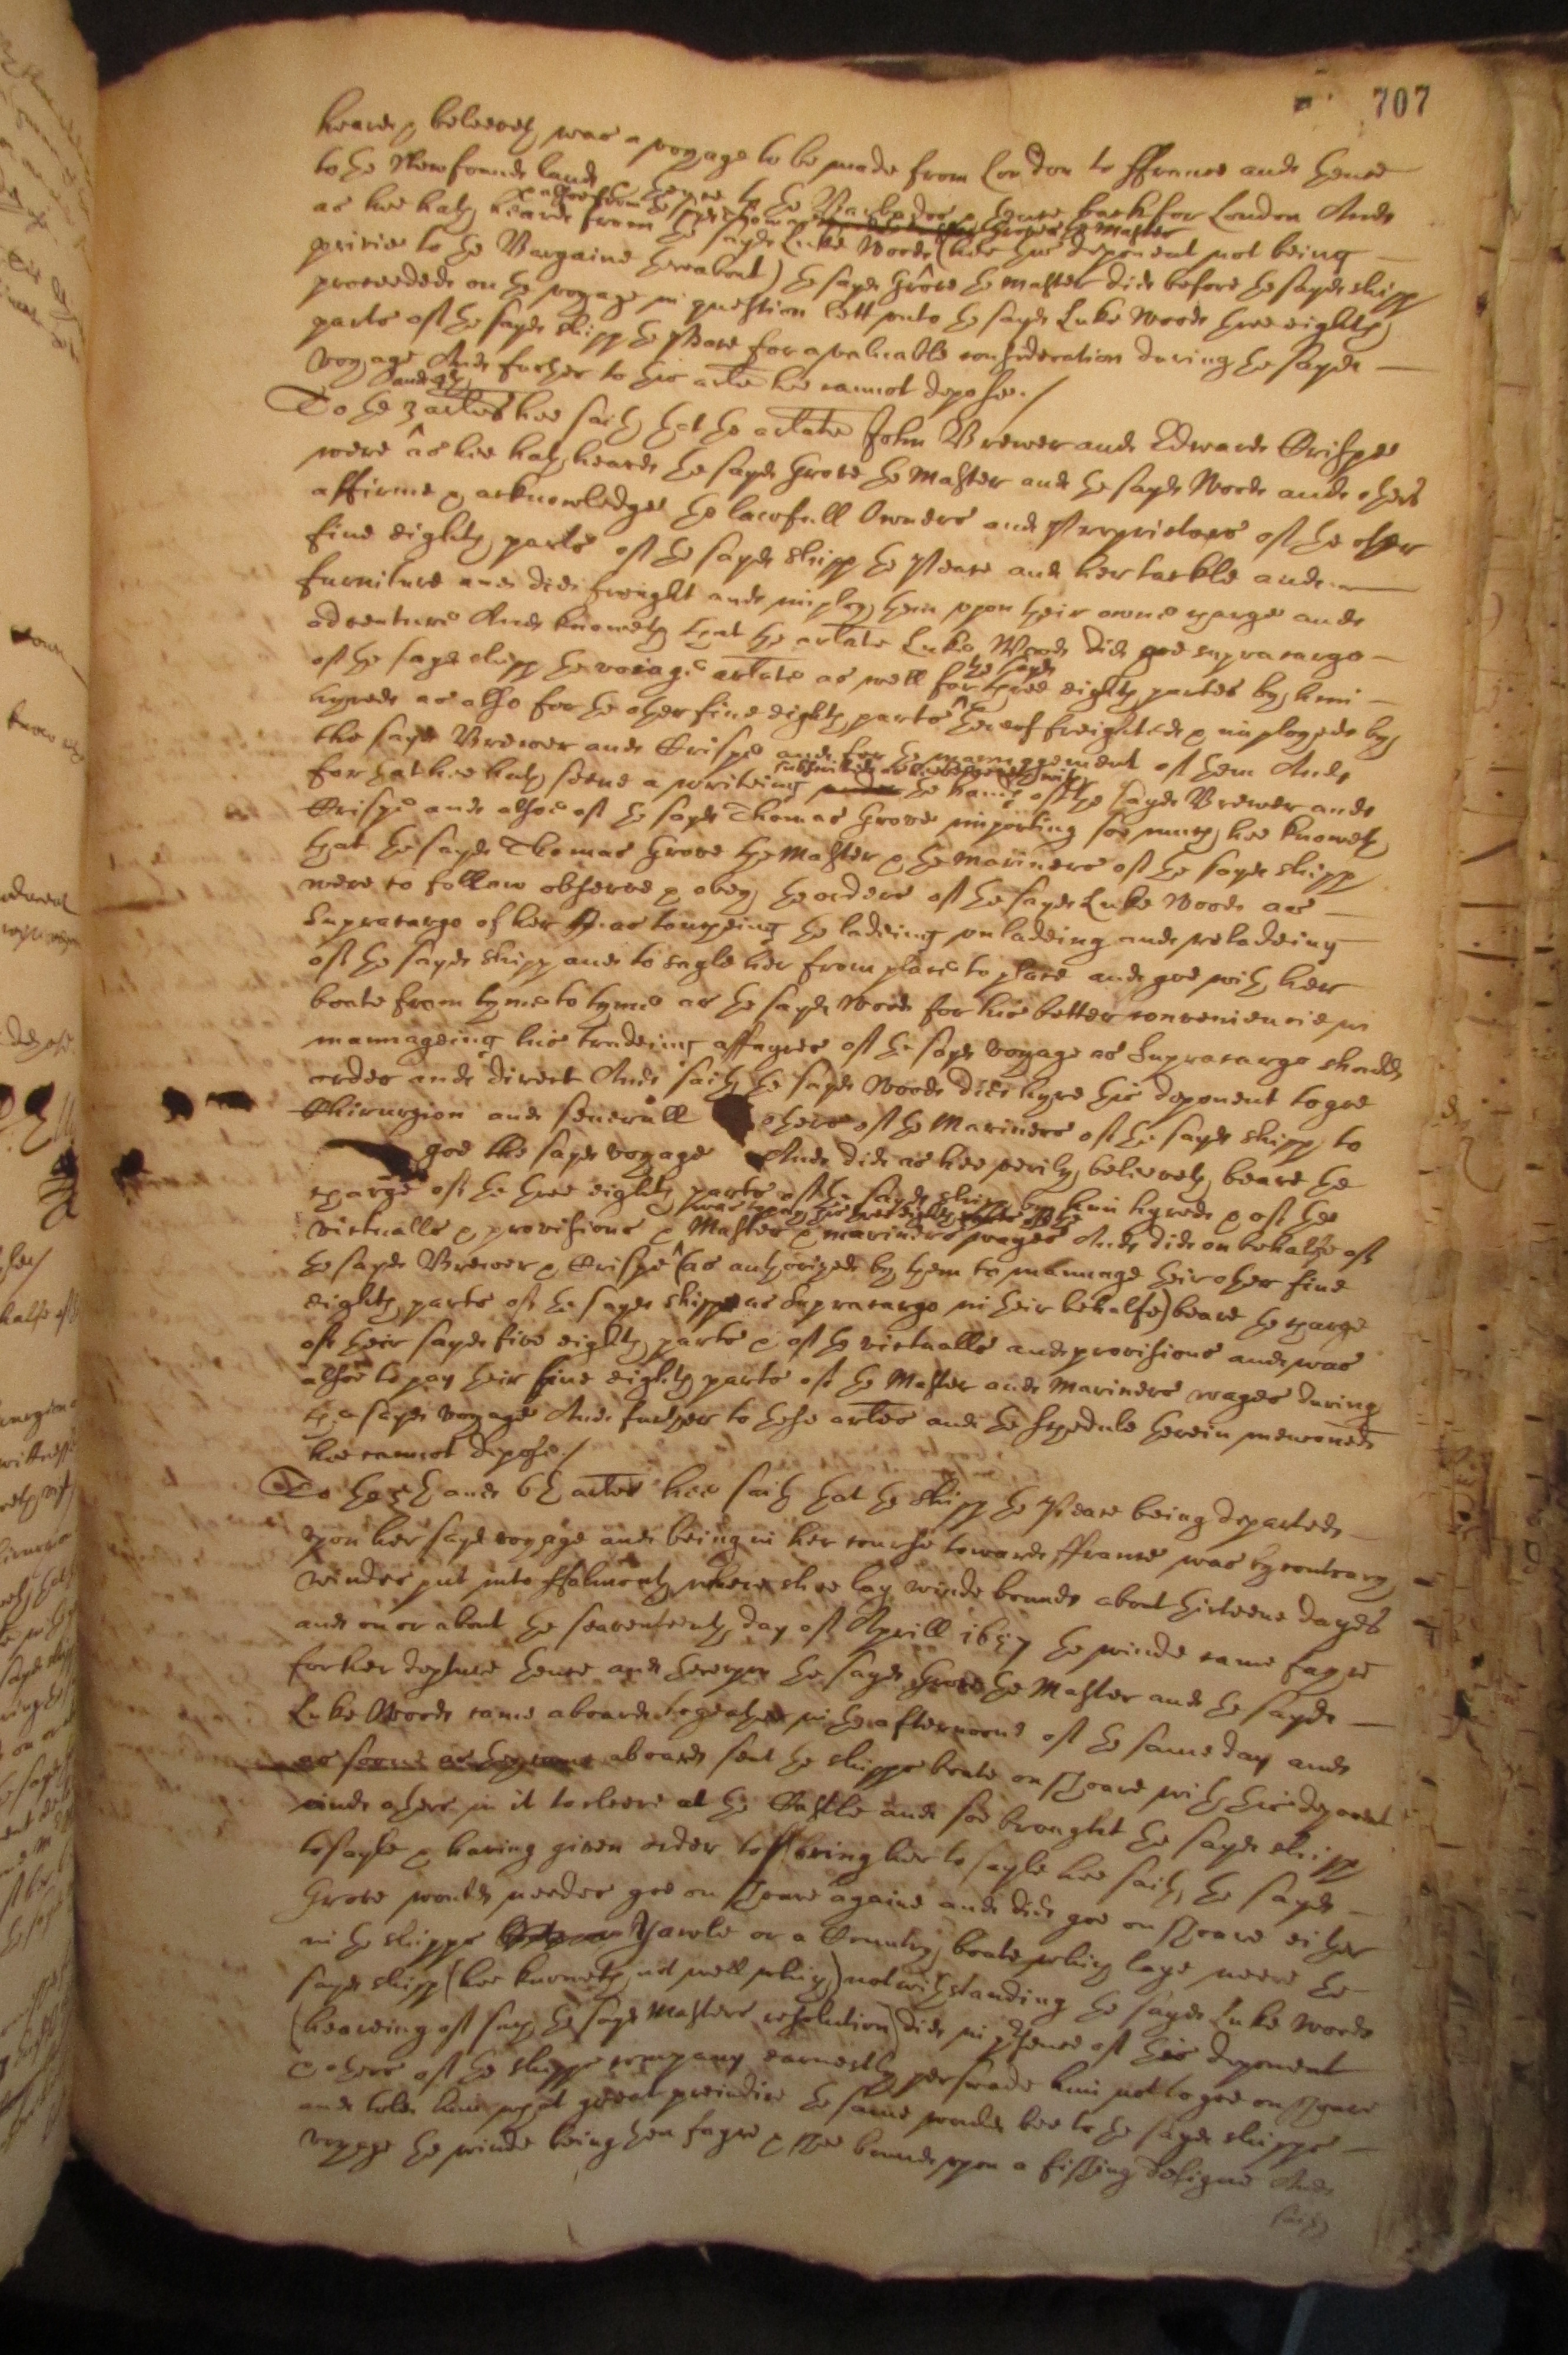 707
heard & beleeveth was a voyage to be made from London to ffrance and thence
to the Newfound land & thence to the Barbadoes & thence back for London And
as hee hath heard from the sayd Luke Woods (hee this deponent not being
privie to the Bargaine thereabout) the sayd Grove the master did before the sayd shipp
proceeded on the voyage in question lett unto the sayd Luke Woods three eighth
parts of the sayd shipp the Peare for a valuable consideration during the sayd
voyage And further to this arte hee cannot depose./
To the 3 and 4th artes hee saith that the artate John Brewer and Edward Crispe
were as hee hath heard the sayd Grove the Master and the sayd Woods and others
affirme & acknowledge the lawfull Owners and Proprietors of the other
five eighth parts of the sayd shipp the Peare and her tackle and
furniture and did freight and imploy them upon their owne charge and
adventure And knoweth that the artate Luke Woods did goe supracargo
of the sayd shipp the voiage artate as well for the sayd three eighth partes by him
hyred as also for the other five eighth parts thereof freighted & imployed by
the sayd Brewer and Crispe and for the management of them And
for that hee hath seene a writeing the hands of the sayd Brewer and
Crispe and alsoe of the sayd Thomas Grove importing soe much hee knoweth
that the sayd Thomas Grove the Master & the mariners of the sayd shipp
were to follow observe & obey the orders of the sayd Luke Woods as
Supracargo of her as touching the ladeing unladeing and reladeing
of the sayd shipp and to sayle her from place to place and goe with her
boate from tyme to tyme as the sayd Woods for his better conveniencie in
mannageing his tradeing affayres of the sayd voyage as Supracargo should
order and direct And saith the sayd Woods did hyre this deponent to goe
Chirurgion and severall others of the Mariners of the sayd shipp to
goe the sayd voyage And did as hee verily beleeveth beare the
charge of the three eighth parts of the sayd shipp by him hyred & of the
victualls & provisions & Master & mariners wages And did on behalfe of
the sayd Brewer & Crispe (as authorized by them to mannage their other five
eighth parts of the sayd shipp as Supracargo in their behalfe) beare the charge
of their sayd five eighth parts & of the victualls and provisions and was
alsoe to pay their five eighth parts of the Master and Mariners wages during
the sayd voyage And further to these artes and the schedule therein mencioned
hee cannot depose./
To the 5th and 6th artes hee saith that the shipp the Peare being departed
upon her sayd voyage and being in her course towards ffrance was by contrary
windes put into ffalmouth where shee lay winde bound about thirteene dayes
and on or about the seaventeenth day of Aprill 1657 the winde came fayre
for her depture thence and thereupon the sayd Grove the Master and the sayd
Luke Woods came aboard togeather in the afternoone of the same day and
as soone as they came aboard sent the shipps boate on shoare with this deponent
and others in it to cleere at the Castle and soe brought the sayd shipp
to sayle & having given order to bring her to sayle hee saith the sayd
Grove would needes goe on shoare againe and did goe on shoare either
in the shipps Yawle or a Country boate which laye neere the
sayd shipp (hee knoweth not well which) notwithstanding the sayd Luke Woods
(heareing of such the sayd Masters resolution) did in psence of this deponent
& others of the shipps company earnestly perswade him not to goe on shoare
and told him what great preiudice the same would bee to the sayd shipps
voyage the winde being then fayre & shee bound upon a fishing designe And
saith